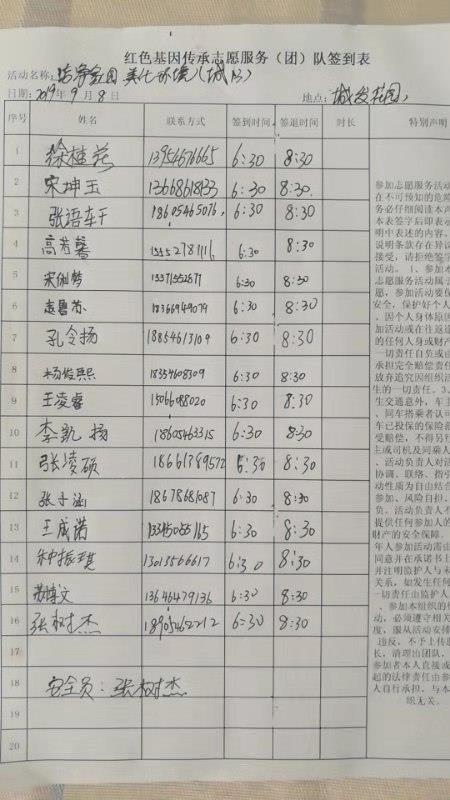 红色基因传承志愿服务（团）队签到表
活动名称：洁净家园 美化环境（城区）
日期：2019年9月8日 地点：城发花园
序号 姓名 联系方式 签到时间 签退时间 时长 特别声明
1 徐桂花 13954676665 6:30 8:30
2 宋坤玉 13668618133 6:30 8:30
3 张语轩 18605465076 6:30 8:30
4 高若馨 6:30 8:30
5 6:30 8:30
6 18366949079 6:30 8:30
7 孔令扬 18854613109 6:30 8:30
8 杨俊熙 18354608309 6:30 8:30
9 王凌睿 15066088020 6:30 8:30
10 李凯扬 18605463315 6:30 8:30
11 张凌硕 18661389572 6:30 8:30
12 张子涵 18678681087 6:30 8:30
13 王成诺 6:30 8:30
14 种振琪 13013566617 6:30 8:30
15 13646479136 6:30 8:30
16 张树杰 18905462212 6:30 8:30
17
18 安全员：张树杰
19
20
参加志愿服务活动
在不可预知的危险
务必仔细阅读本声
本表签字后即表示
明中表述的内容。
说明条款存在异议
接受，请拒绝签字
活动。 1、参加本
志愿服务活动属于
愿，参加活动要保
安全，保护好个人
，因个人身体原因
加活动或在往返途
的任何人身或财产
一切责任自负或由
承担完全赔偿责任
放弃追究因组织活
生的一切责任。3、
生交通意外，车主
、同车搭乘者认可
车已投保的保险范
受赔偿，不得另行
主或司机及同乘人
、活动负责人对活
协调、联络、指引
动性质为自由结合
参加、风险自担、
负，活动负责人不
提供任何参加人的
财产的安全保障。
年人参加活动需由
同意并在承诺书上
并注明监护人与未
关系，如发生任何
一切责任由监护人
、参加本组织的
动，必须遵守相关
度，服从活动安排
违反，不予上传
长，清理出团队，
参加者本人直接或
起的法律责任由参
人自行承担，与本
织无关。